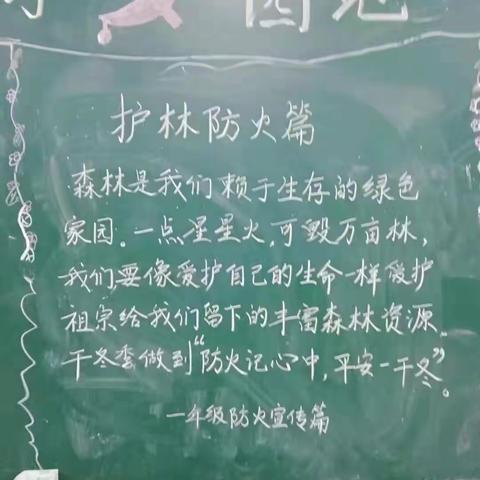 园地
护林防火篇
森林是我们赖于生存的绿色
家园。一点星星火,可毁万亩林,
我们要像爱护自己的生命一样爱护
祖宗给我们留下的丰富森林资源,
干冬季做到“防火记心中,平安一干冬”。
一年级防火宣传篇